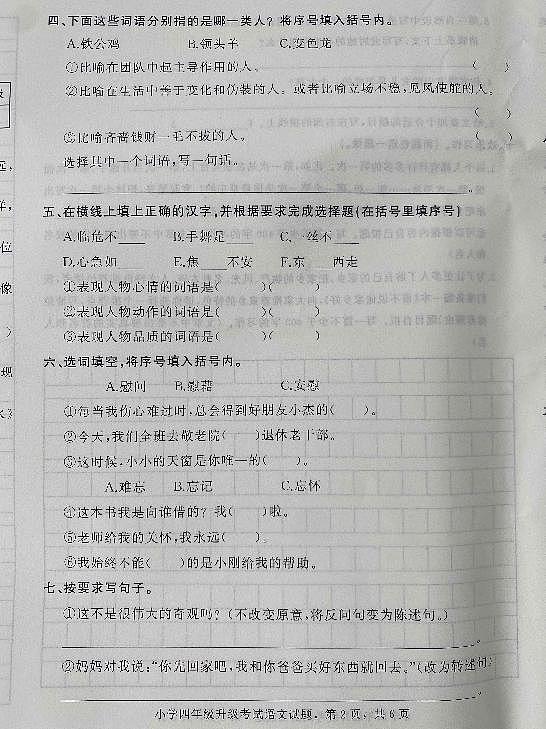 四、下面这些词语分别指的是哪一类人？将序号填入括号内。
A.铁公鸡 B.领头羊 C.变色龙
①比喻在团队中起主导作用的人。 ( )
②比喻在生活中善于变化和伪装的人。或者比喻立场不稳,见风使舵的人。
( )
③比喻吝啬钱财一毛不拔的人。 ( )
选择其中一个词语,写一句话。
五、在横线上填上正确的汉字,并根据要求完成选择题(在括号里填序号)
A.临危不___ B.手舞足___ C.一丝不___
D.心急如___ E.焦___不安 F.东___西走
①表现人物心情的词语是( )( )
②表现人物动作的词语是( )( )
③表现人物品质的词语是( )( )
六、选词填空,将序号填入括号内。
A.慰问 B.慰藉 C.安慰
①每当我伤心难过时,总会得到好朋友小杰的( )。
②今天,我们全班去敬老院( )退休老干部。
③这时候,小小的天窗是你唯一的( )。
A.难忘 B.忘记 C.忘怀
④这本书我是向谁借的？我( )啦。
⑤老师给我的关怀,我永远( )。
⑥我始终不能( )的是小刚给我的帮助。
七、按要求写句子。
①这不是很伟大的奇观吗？(不改变原意,将反问句变为陈述句。)
②妈妈对我说:“你先回家吧,我和你爸爸买好东西就回去。”(改为转述句)
小学四年级升级考试语文试题，第2页，共6页